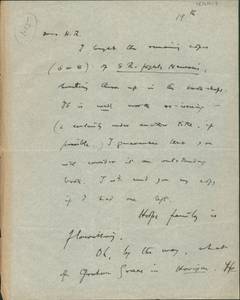 19th
Dear H.R.
I bought the remaining copies
(6 or 8) of
hunting them up in the bookshops.
It is well worth re-issuing —
(& certainly under another title, if
possible.) I guarantee that you
will consider it an outstanding
work. I wd. send you my copy,
if I had one left.
Hope family is
flourishing.
Oh, by the way, what
of Graham Greene in Horizon